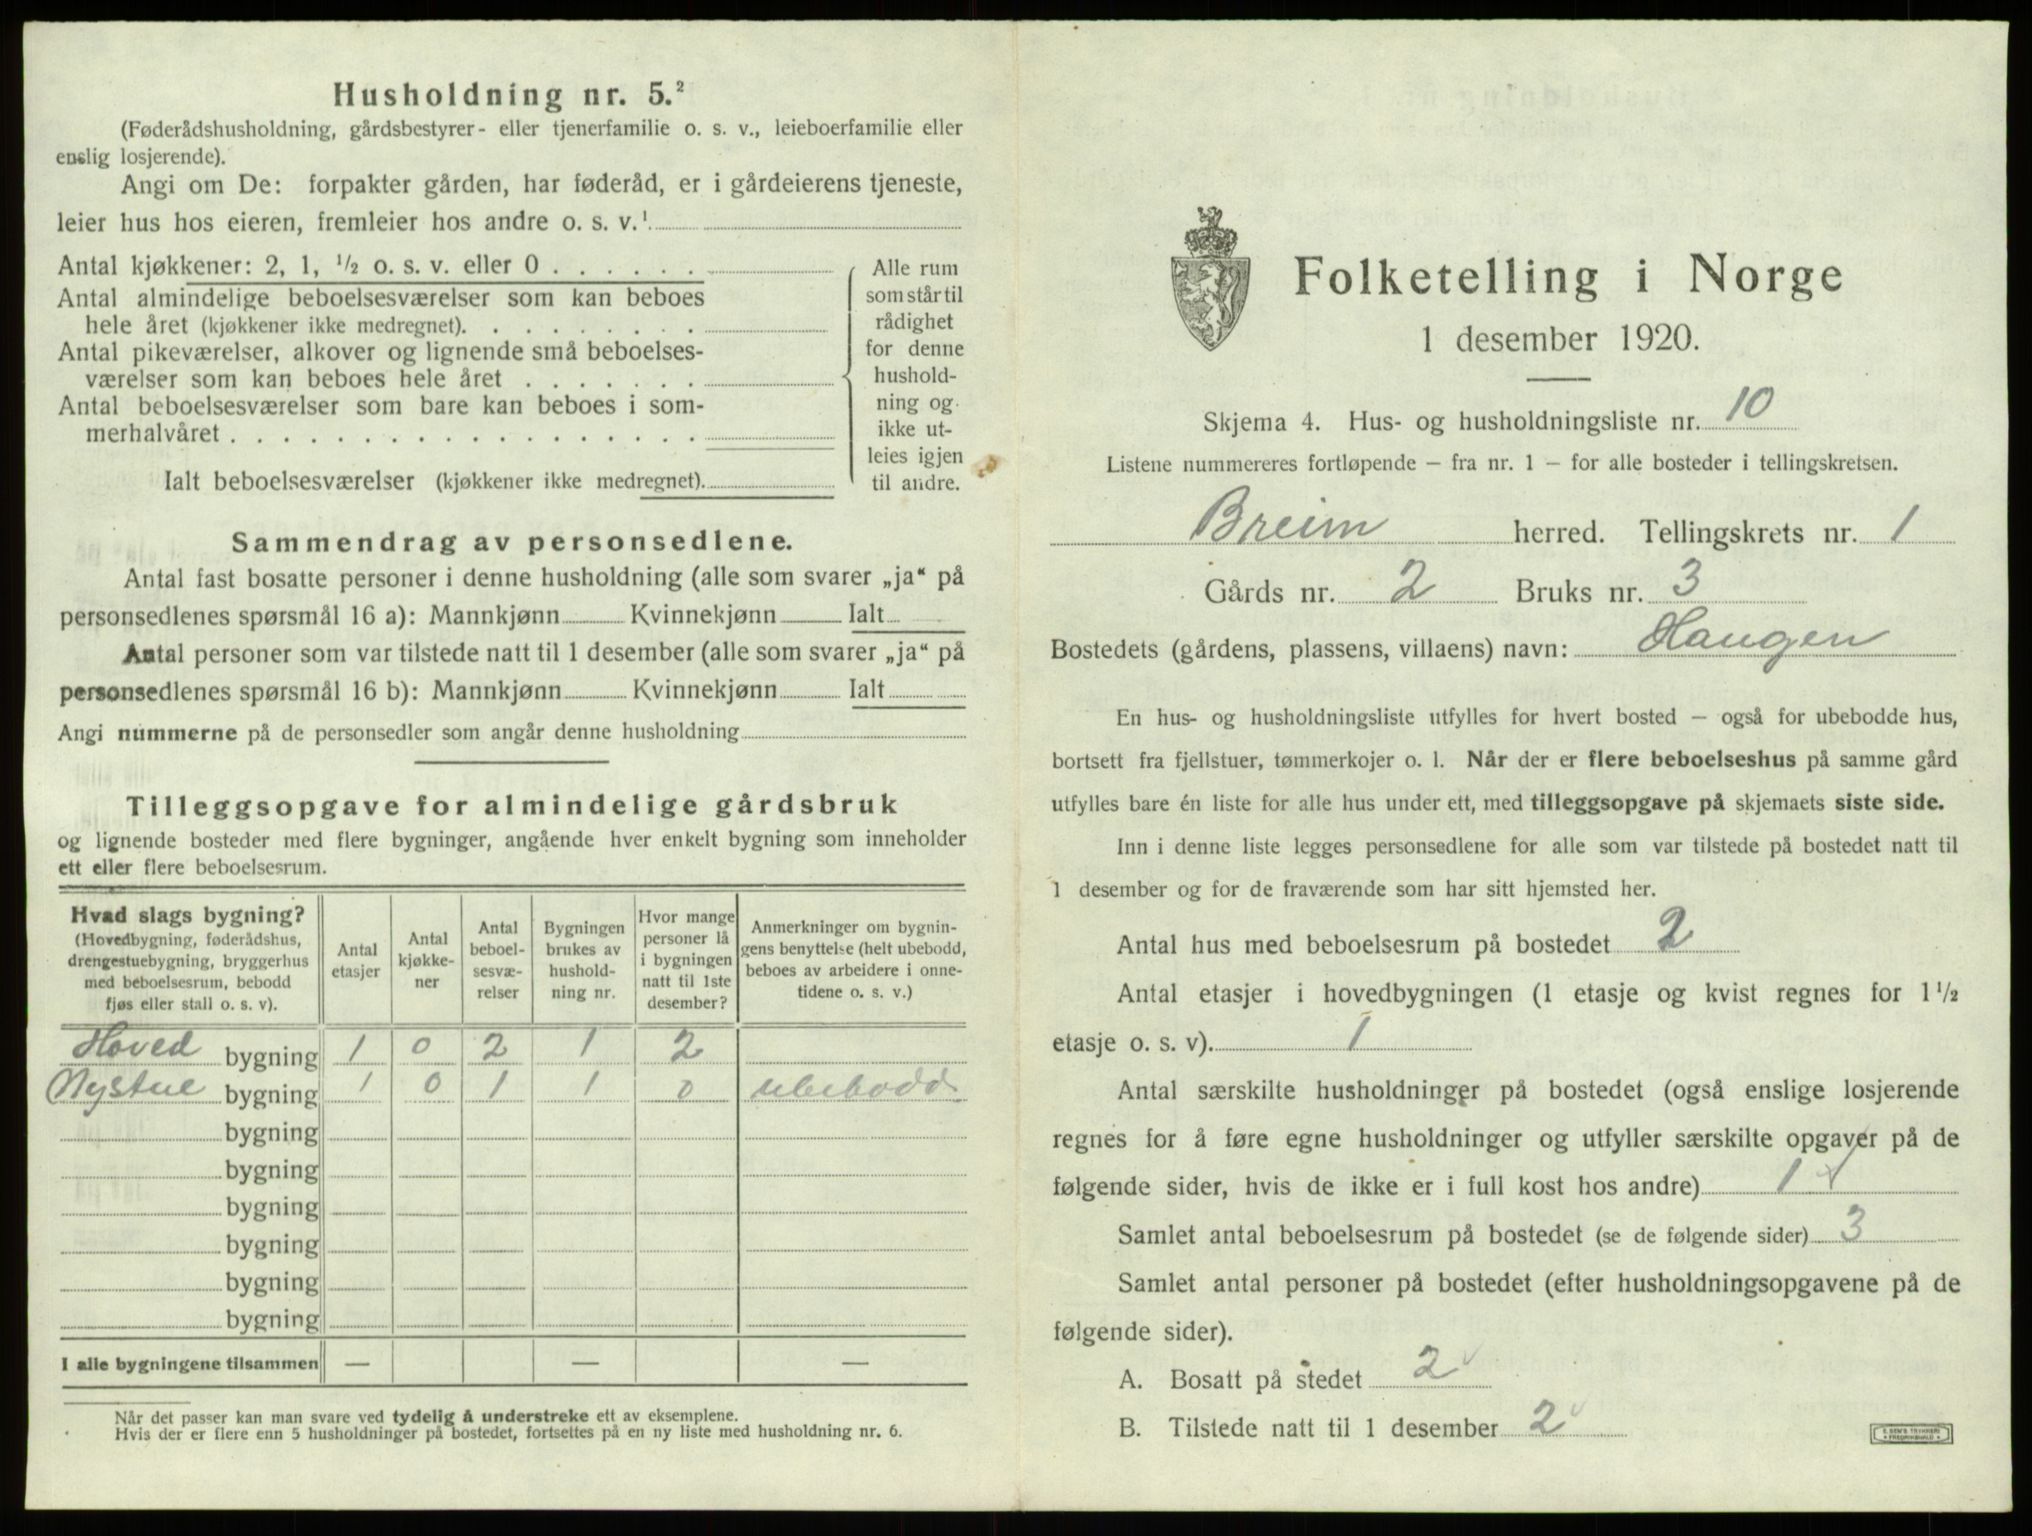 Husholdning nr. 5.²
(Føderådshusholdning, gårdsbestyrer- eller tjenerfamilie o. s. v., leieboerfamilie eller
enslig losjerende).
Angi om De: forpakter gården, har føderåd, er i gårdeierens tjeneste,
leier hus hos eieren, fremleier hos andre o. s. v.¹
Antal kjøkkener: 2, 1, ½ o. s. v. eller 0 . . . . . .
Antal almindelige beboelsesværelser som kan beboes
hele året (kjøkkener ikke medregnet). . . . . . . . .
Antal pikeværelser, alkover og lignende små beboelses-
værelser som kan beboes hele året . . . . . . .
Antal beboelsesværelser som bare kan beboes i som-
merhalvåret . . . . . . . . . . . . . . . . . .
Ialt beboelsesværelser (kjøkkener ikke medregnet).
Alle rum
som står til
rådighet
for denne
hushold-
ning og
ikke ut-
leies igjen
til andre.
Sammendrag av personsedlene.
Antal fast bosatte personer i denne husholdning (alle som svarer „ja“ på
personsedlenes spørsmål 16 a): Mannkjønn Kvinnekjønn Ialt
Antal personer som var tilstede natt til 1 desember (alle som svarer „ja“ på
personsedlenes spørsmål 16 b): Mannkjønn Kvinnekjønn Ialt
Angi nummerne på de personsedler som angår denne husholdning
Tilleggsopgave for almindelige gårdsbruk
og lignende bosteder med flere bygninger, angående hver enkelt bygning som inneholder
ett eller flere beboelsesrum.
Hvad slags bygning?
(Hovedbygning, føderådshus,
drengestuebygning, bryggerhus
med beboelsesrum, bebodd
fjøs eller stall o. s. v).
Antal
etasjer
Antal
kjøkke-
ner
Antal
beboel-
sesvæ-
relser
Bygningen
brukes av
hushold-
ning nr.
Hvor mange
personer lå
i bygningen
natt til 1ste
desember?
Anmerkninger om bygnin-
gens benyttelse (helt ubebodd,
beboes av arbeidere i onne-
tidene o. s. v.)
Hoved bygning 1 0 2 1 2
Nystue bygning 1 0 1 1 0 ubebodd
bygning
bygning
bygning
bygning
bygning
bygning
I alle bygningene tilsammen — — —
Når det passer kan man svare ved tydelig å understreke ett av eksemplene.
Hvis der er flere enn 5 husholdninger på bostedet, fortsettes på en ny liste med husholdning nr. 6.
Folketelling i Norge
1 desember 1920.
Skjema 4. Hus- og husholdningsliste nr. 10
Listene nummereres fortløpende – fra nr. 1 – for alle bosteder i tellingskretsen.
Breim herred. Tellingskrets nr. 1
Gårds nr. 2 Bruks nr. 3
Bostedets (gårdens, plassens, villaens) navn: Haugen
En hus- og husholdningsliste utfylles for hvert bosted – også for ubebodde hus,
bortsett fra fjellstuer, tømmerkojer o. l. Når der er flere beboelseshus på samme gård
utfylles bare én liste for alle hus under ett, med tilleggsopgave på skjemaets siste side.
Inn i denne liste legges personsedlene for alle som var tilstede på bostedet natt til
1 desember og for de fraværende som har sitt hjemsted her.
Antal hus med beboelsesrum på bostedet 2
Antal etasjer i hovedbygningen (1 etasje og kvist regnes for 1½
etasje o. s. v). 1
Antal særskilte husholdninger på bostedet (også enslige losjerende
regnes for å føre egne husholdninger og utfyller særskilte opgaver på de
følgende sider, hvis de ikke er i full kost hos andre) 1
Samlet antal beboelsesrum på bostedet (se de følgende sider) 3
Samlet antal personer på bostedet (efter husholdningsopgavene på de
følgende sider).
A. Bosatt på stedet 2
B. Tilstede natt til 1 desember 2
E. SEM'S TRYKKERI
FREDRIKSHALD